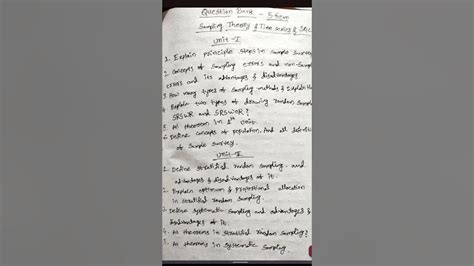 Question Bank - 5 sem
Sampling Theory & Time series & 
Unit-I
1. Explain principle steps in sample survey
2. Concepts of sampling errors and non-sampling
errors and its advantages & disadvantages
3. How many types of sampling methods & explain
4. Explain two types of drawing random sample
SRSWR and SRSWOR?
5. All theorems in 1st unit.
6. Define concepts of population. And all
of sample survey.
Unit-II
1. Define stratified random sampling. and
advantages & disadvantages of it.
2. Explain optimum & proportional allocation
in stratified random sampling.
3. Define systematic sampling and advantages &
disadvantages of it.
4. All theorems in stratified random sampling?
5. All theorems in systematic sampling.